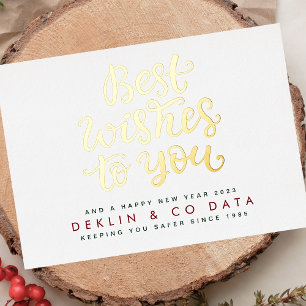 Best
wishes
to you
AND A HAPPY NEW YEAR 2023
DEKLIN & CO DATA
KEEPING YOU SAFER SINCE 1985